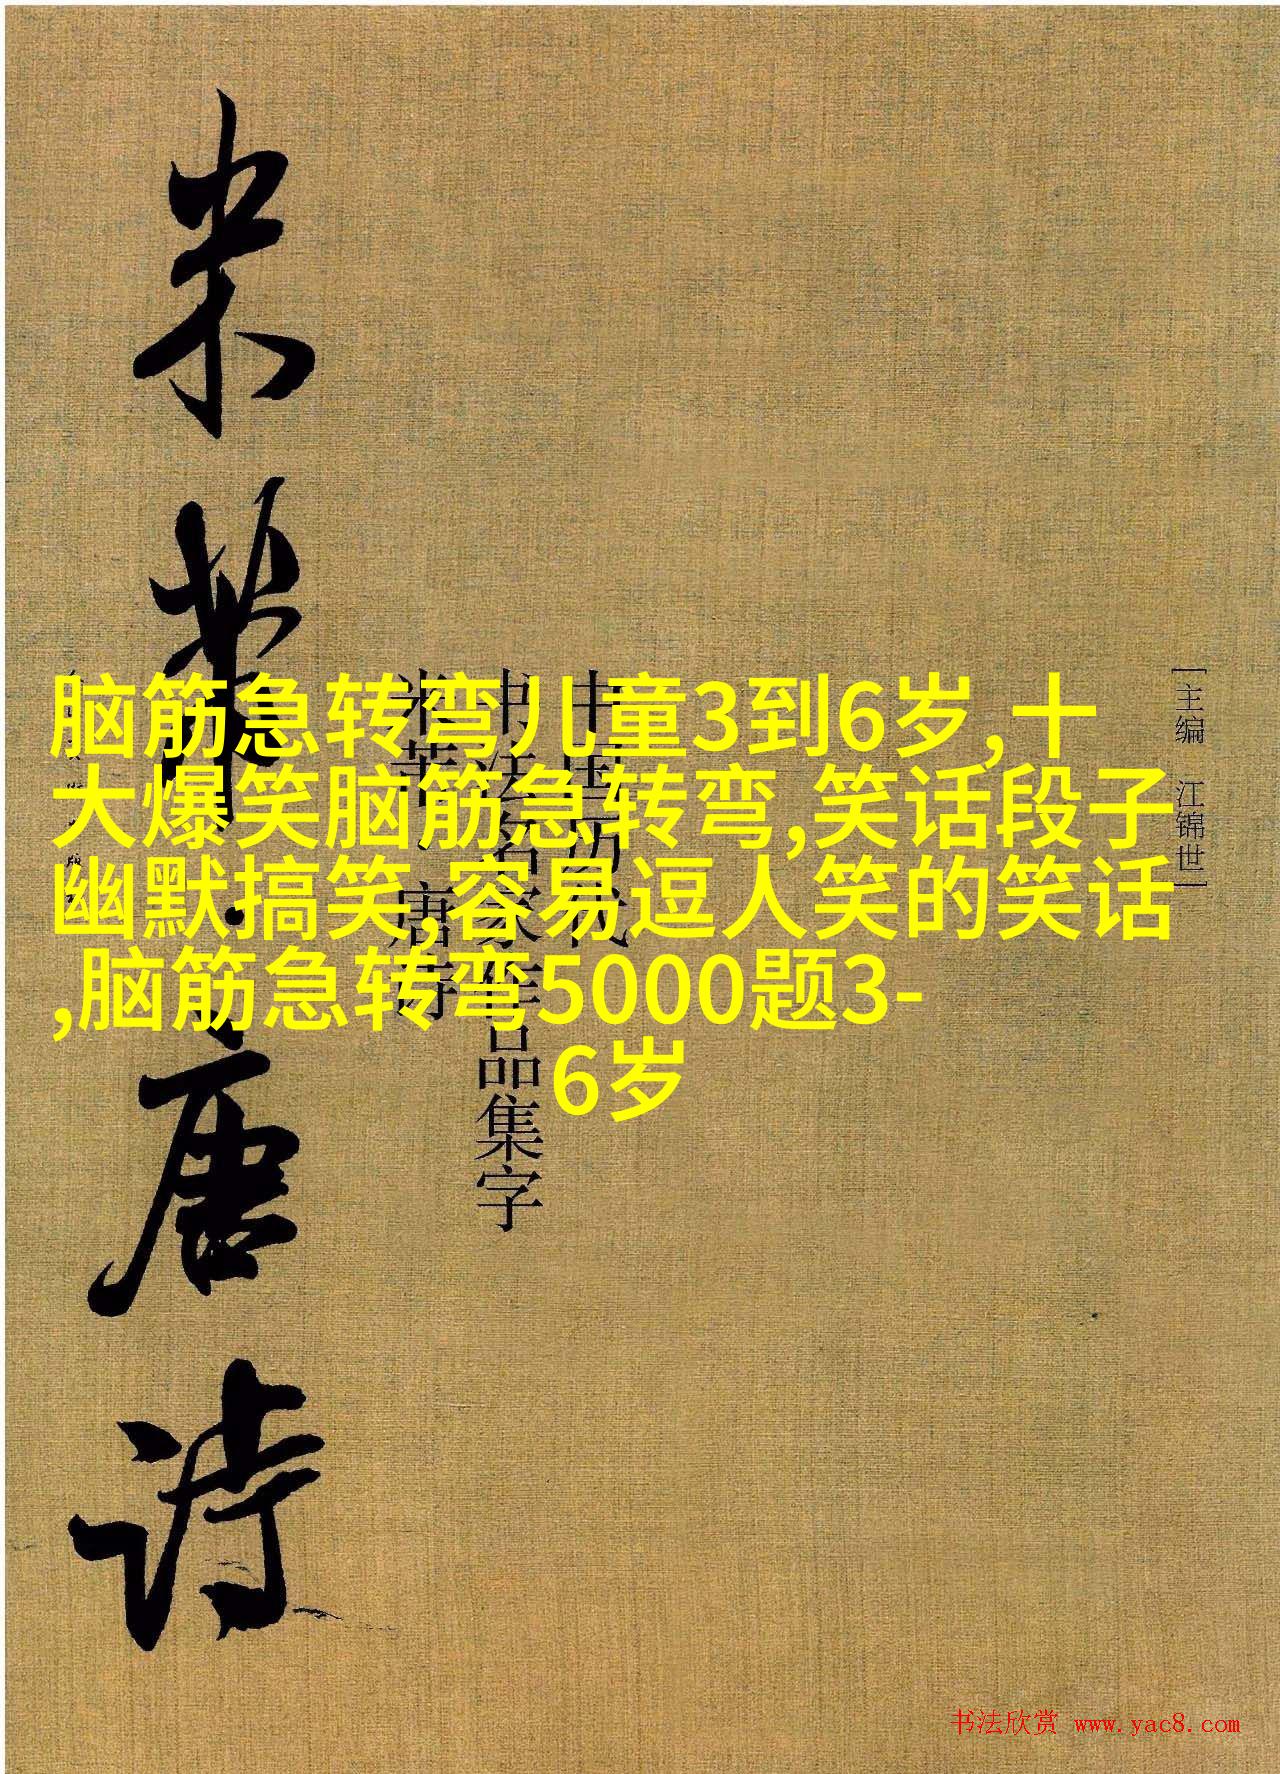 脑筋急转弯儿童3到6岁,十
大爆笑脑筋急转弯,笑话段子
幽默搞笑,容易逗人笑的笑话
,脑筋急转弯5000题3-
6岁
米芾
唐诗
中国历代
书法名家作品集字
米芾·唐诗
[主编 江锦世]
书法欣赏 www.yac8.com